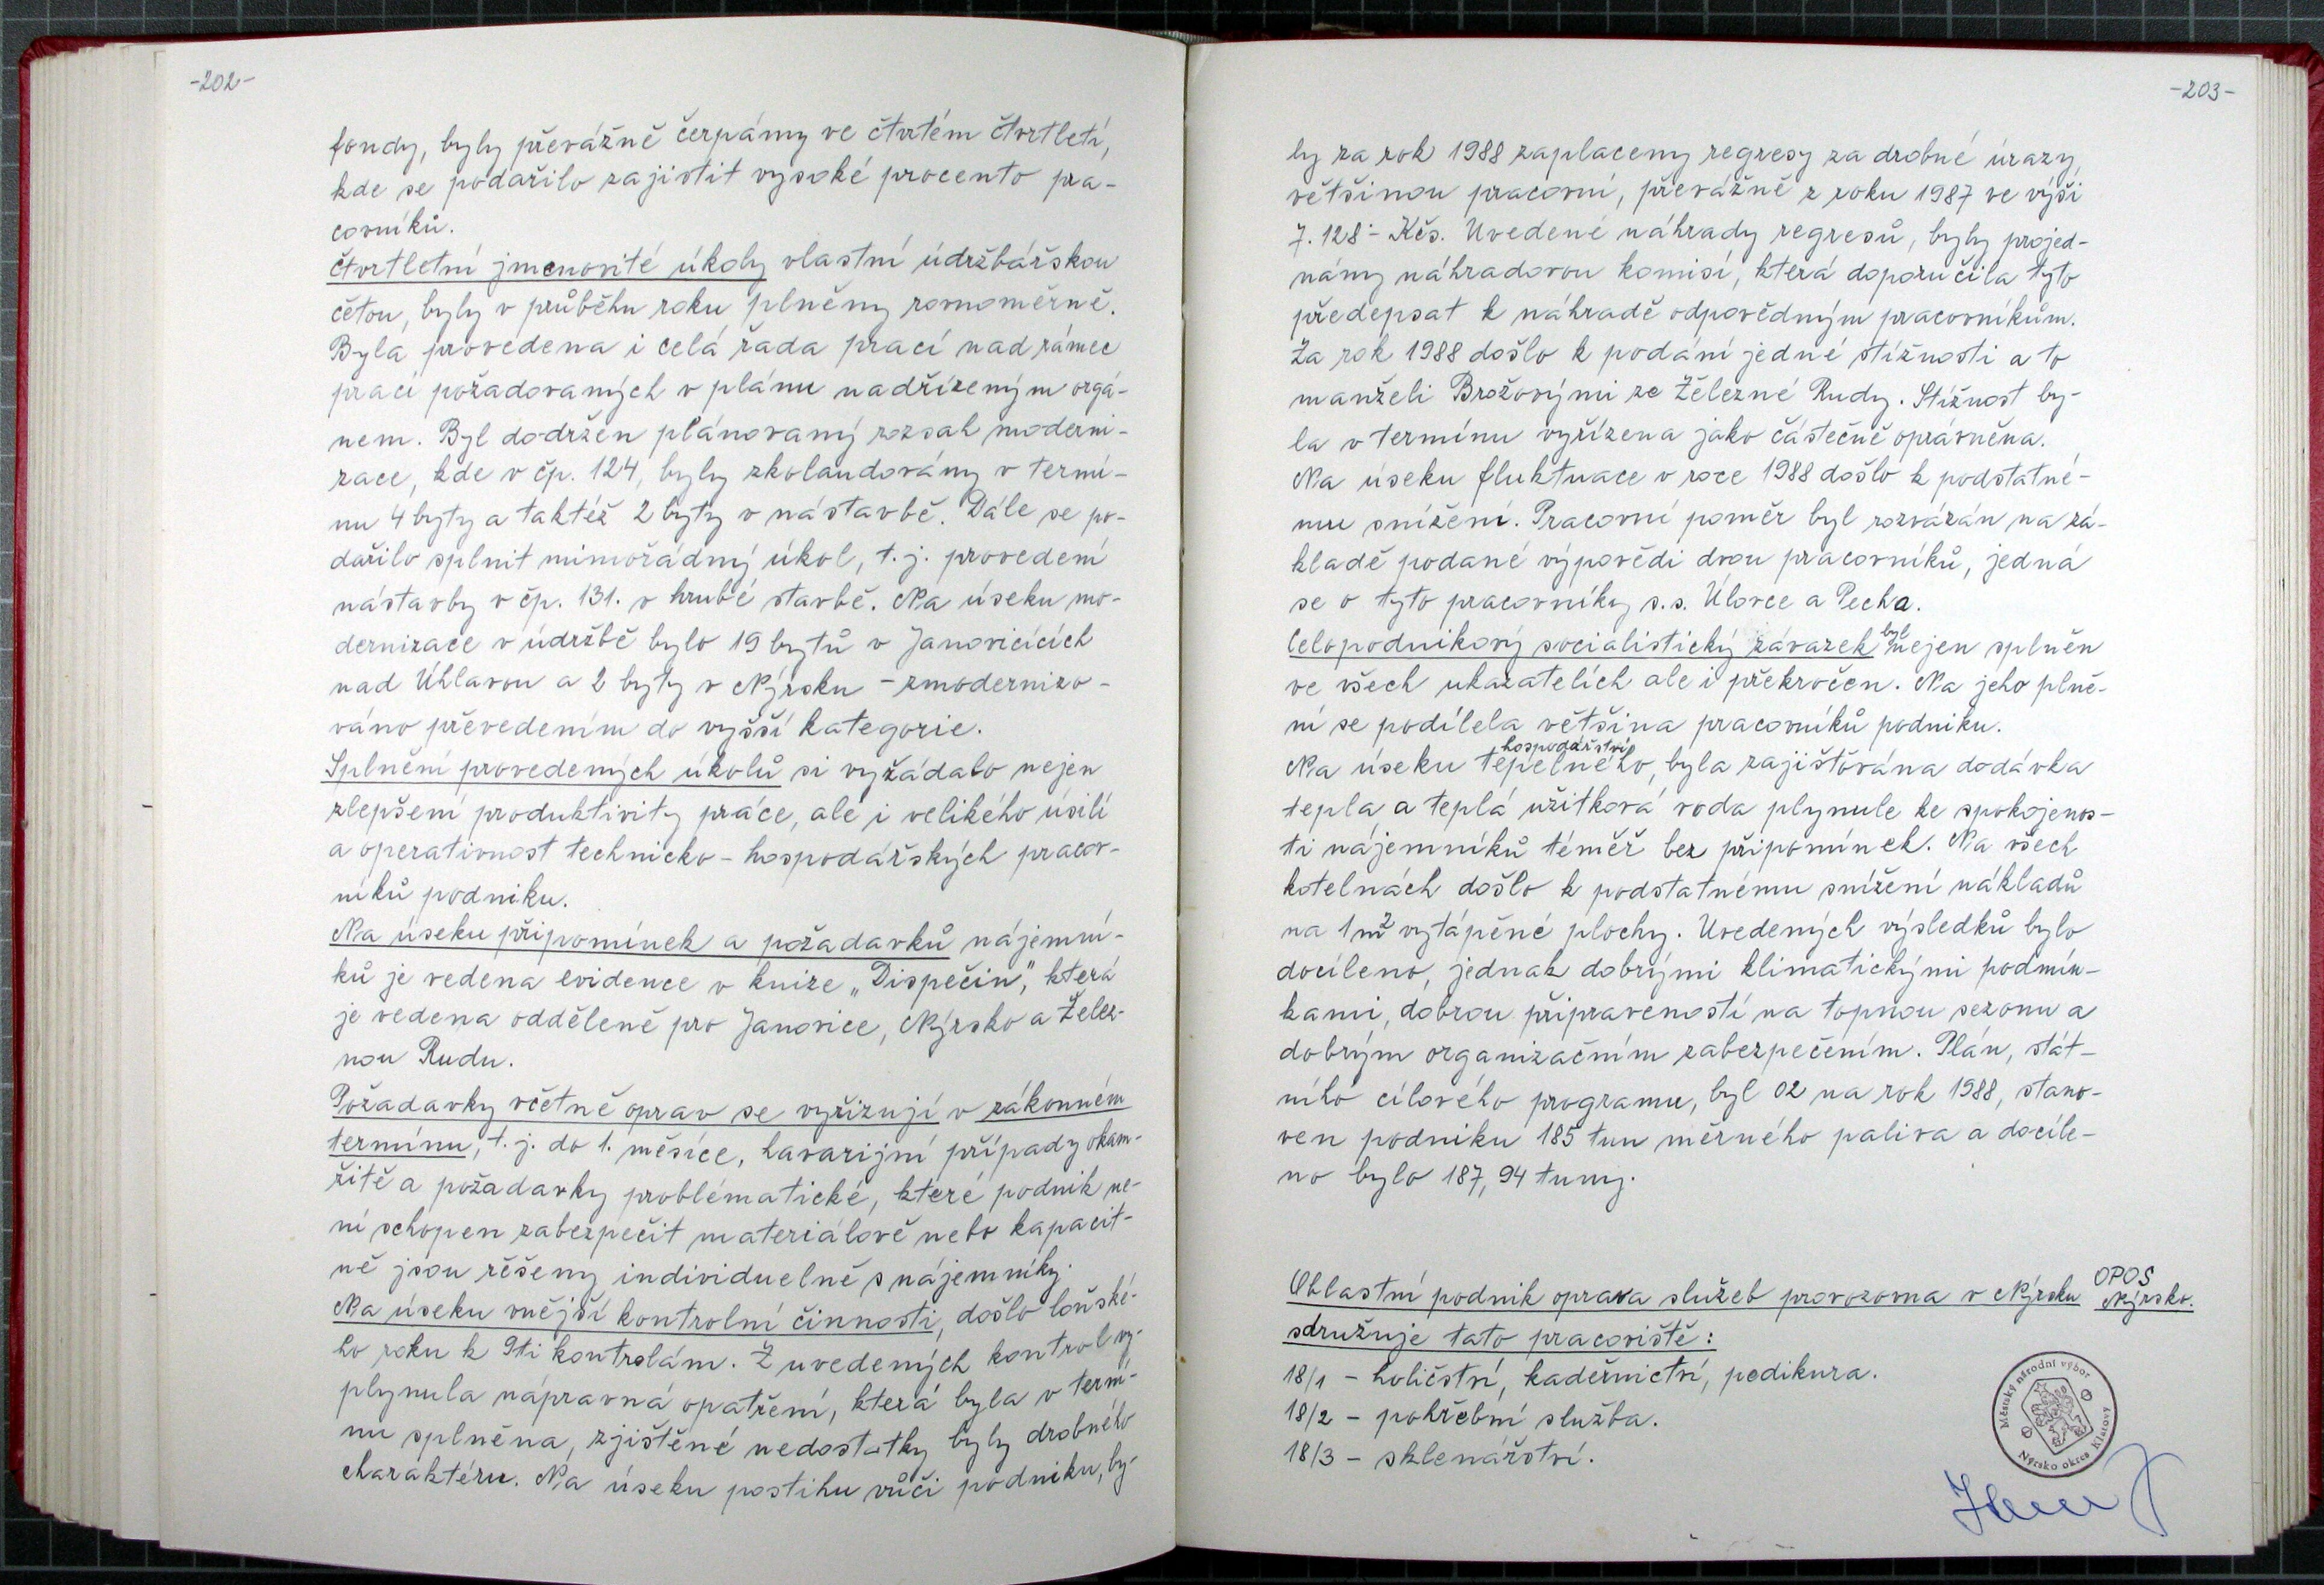 -202-
fondy, byly převážně čerpány ve čtvrtém čtvrtletí,
kde se podařilo zajistit vysoké procento pra-
covníků.
čtvrtletní jmenovité úkoly vlastní údržbářskou
četou, byly v průběhu roku plněny rovnoměrně.
Byla provedena i celá řada prací nad rámec
prací požadovaných v plánu nadřízeným orgá-
nem. Byl dodržen plánovaný rozsah moderni-
zace, kde v čp. 124, byly zkolaudovány v termí-
nu 4 byty a taktéž 2 byty v nástavbě. Dále se po-
dařilo splnit mimořádný úkol, t.j. provedení
nástavby v čp. 131. v hrubé stavbě. Na úseku mo-
dernizace v údržbě bylo 19 bytů v Janovicících
nad Úhlavou a 2 byty v Nýrsku - zmodernizo-
váno převedením do vyšší kategorie.
Splnění provedených úkolů si vyžádalo nejen
zlepšení produktivity práce, ale i velikého úsilí
a operativnost technicko - hospodářských pracov-
níků podniku.
Na úseku připomínek a požadavků nájemní-
ků je vedena evidence v knize „Dispečin“, která
je vedena odděleně pro Janovice, Nýrsko a Želez-
nou Rudu.
Požadavky včetně oprav se vyřizují v zákonném
termínu, t.j. do 1. měsíce, havarijní případy okam-
žitě a požadavky problématické, které podnik ne-
ní schopen zabezpečit materiálově nebo kapacit-
ně jsou řěšeny individuelně s nájemníky.
Na úseku vnější kontrolní činnosti, došlo loňské-
ho roku k 9ti kontrolám. Z uvedených kontrol vy-
plynula nápravná opatření, která byla v termí-
nu splněna, zjištěné nedostatky byly drobného
charaktéru. Na úseku postihu vůči podniku, by-
-203-
ly za rok 1988 zaplaceny regresy za drobné úrazy,
většinou pracovní, převážně z roku 1987 ve výši
7.128.- Kčs. Uvedené náhrady regresů, byly projed-
nány náhradovou komisí, která doporučila tyto
předepsat k náhradě odpovědným pracovníkům.
Za rok 1988 došlo k podání jedné stížnosti a to
manželi Brožovými ze Železné Rudy. Stížnost by-
la v termínu vyřízena jako částečně oprávněna.
Na úseku fluktuace v roce 1988 došlo k podstatné-
mu snížení. Pracovní poměr byl rozvázán na zá-
kladě podané výpovědi dvou pracovníků, jedná
se o tyto pracovníky s.s. Úlovce a Pecha.
Celopodnikový socialistický závazek byl nejen splněn
ve všech ukazatelích ale i překročen. Na jeho plně-
ní se podílela většina pracovníků podniku.
Na úseku tepelného hospodářství, byla zajišťována dodávka
tepla a teplá užitková voda plynule ke spokojenos-
ti nájemníků téměř bez připomínek. Na všech
kotelnách došlo k podstatnému snížení nákladů
na 1m² vytápěné plochy. Uvedených výsledků bylo
docíleno, jednak dobrými klimatickými podmín-
kami, dobrou připraveností na topnou sezonu a
dobrým organizačním zabezpečením. Plán, stát-
ního cílového programu, byl 02 na rok 1988, stano-
ven podniku 185 tun měrného paliva a docíle-
no bylo 187,94 tuny.
Oblastní podnik oprava služeb provozovna v Nýrsku
OPOS
Nýrsko.
sdružuje tato pracoviště:
18/1 - holičství, kadeřnictví, pedikura.
18/2 - pohřební služba.
18/3 - sklenářství.
Městský národní výbor
Nýrsko okres Klatovy